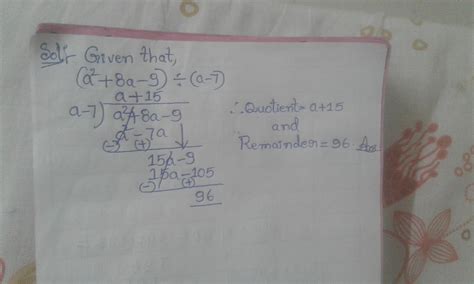 Sol:- Given that,
(a²+8a-9) ÷ (a-7)
a+15
a-7) a²+8a-9
a²-7a
(-) (+)
15a-9
15a-105
(-) (+)
96
∴ Quotient = a+15
and
Remainder = 96 Ans.